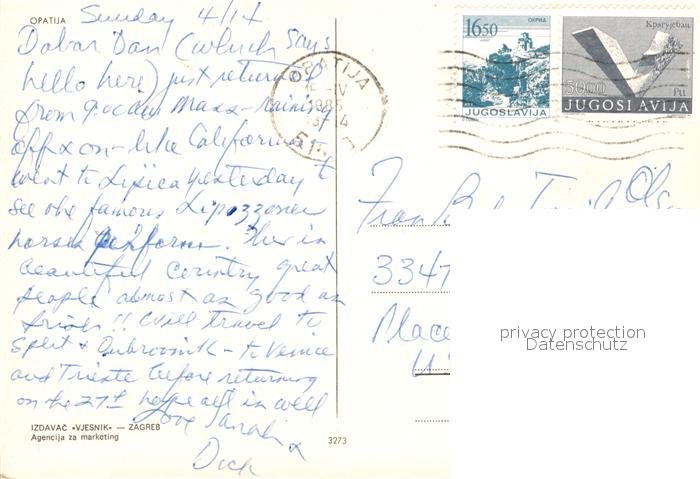 OPATIJA
Sunday 4/14
Dobar Dan (which says
hello here) just returned
from Mass - raining
off & on - like California
went to Lipica yesterday to
see the famous Lipozzoner
horses perform. This is
beautiful country great
people almost as good as
!! will travel to
Split & Dubrovnik - to Venice
and Trieste before returning
on the 27th hope all is well
love Sarah &
Dick
IZDAVAČ «VJESNIK» — ZAGREB
Agencija za marketing
3273
OPATIJA
IV
1985
14
51
16.50
ОХРИД
JUGOSLAVIJA
Крагујевац
50.00
JUGOSLAVIJA
Frank
3347
Place
privacy protection
Datenschutz